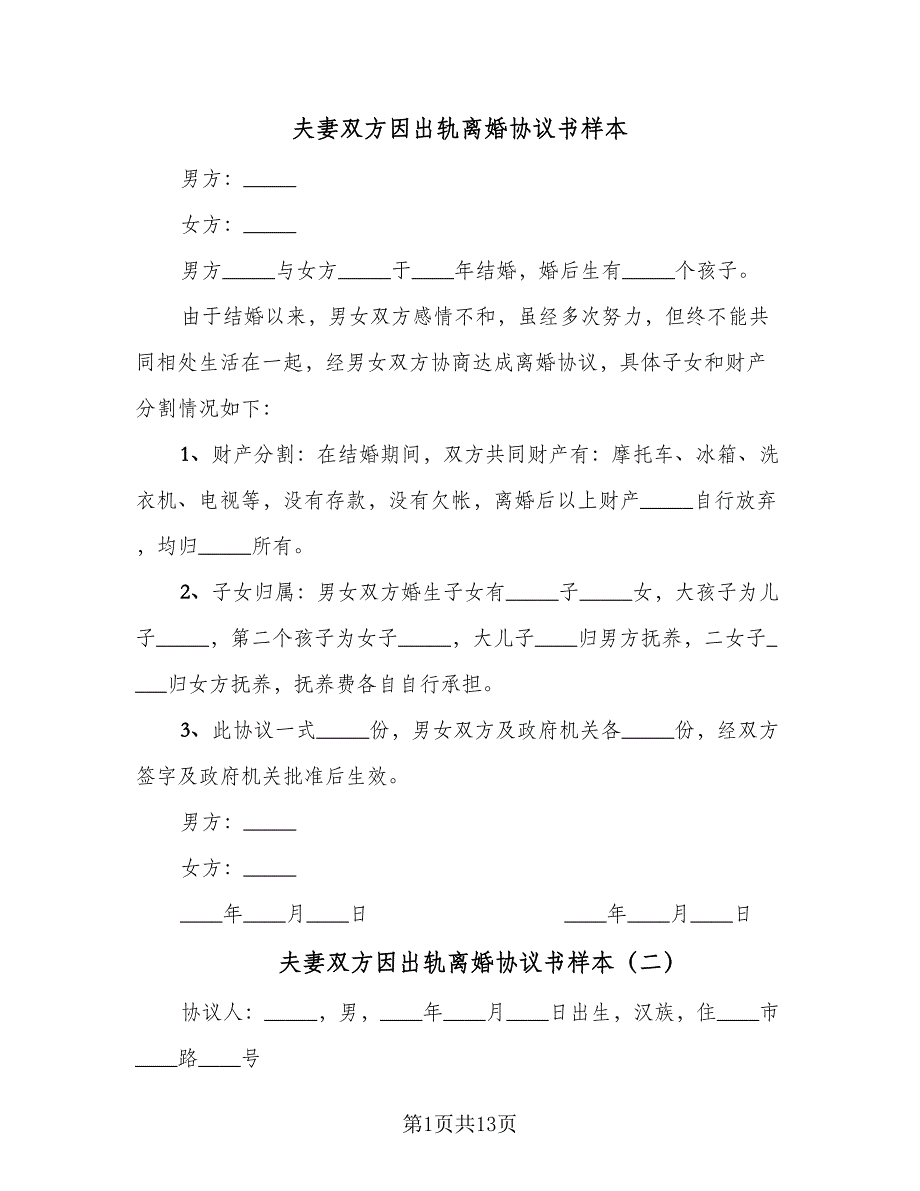 夫妻双方因出轨离婚协议书样本
男方：_____
女方：_____
男方_____与女方_____于____年结婚，婚后生有_____个孩子。
由于结婚以来，男女双方感情不和，虽经多次努力，但终不能共
同相处生活在一起，经男女双方协商达成离婚协议，具体子女和财产
分割情况如下：
1、财产分割：在结婚期间，双方共同财产有：摩托车、冰箱、洗
衣机、电视等，没有存款，没有欠帐，离婚后以上财产_____自行放弃
，均归_____所有。
2、子女归属：男女双方婚生子女有_____子_____女，大孩子为儿
子_____，第二个孩子为女子_____，大儿子____归男方抚养，二女子_
___归女方抚养，抚养费各自自行承担。
3、此协议一式_____份，男女双方及政府机关各_____份，经双方
签字及政府机关批准后生效。
男方：_____
女方：_____
____年____月____日 ____年____月____日
夫妻双方因出轨离婚协议书样本（二）
协议人：_____，男，____年____月____日出生，汉族，住____市
____路____号
第1页共13页